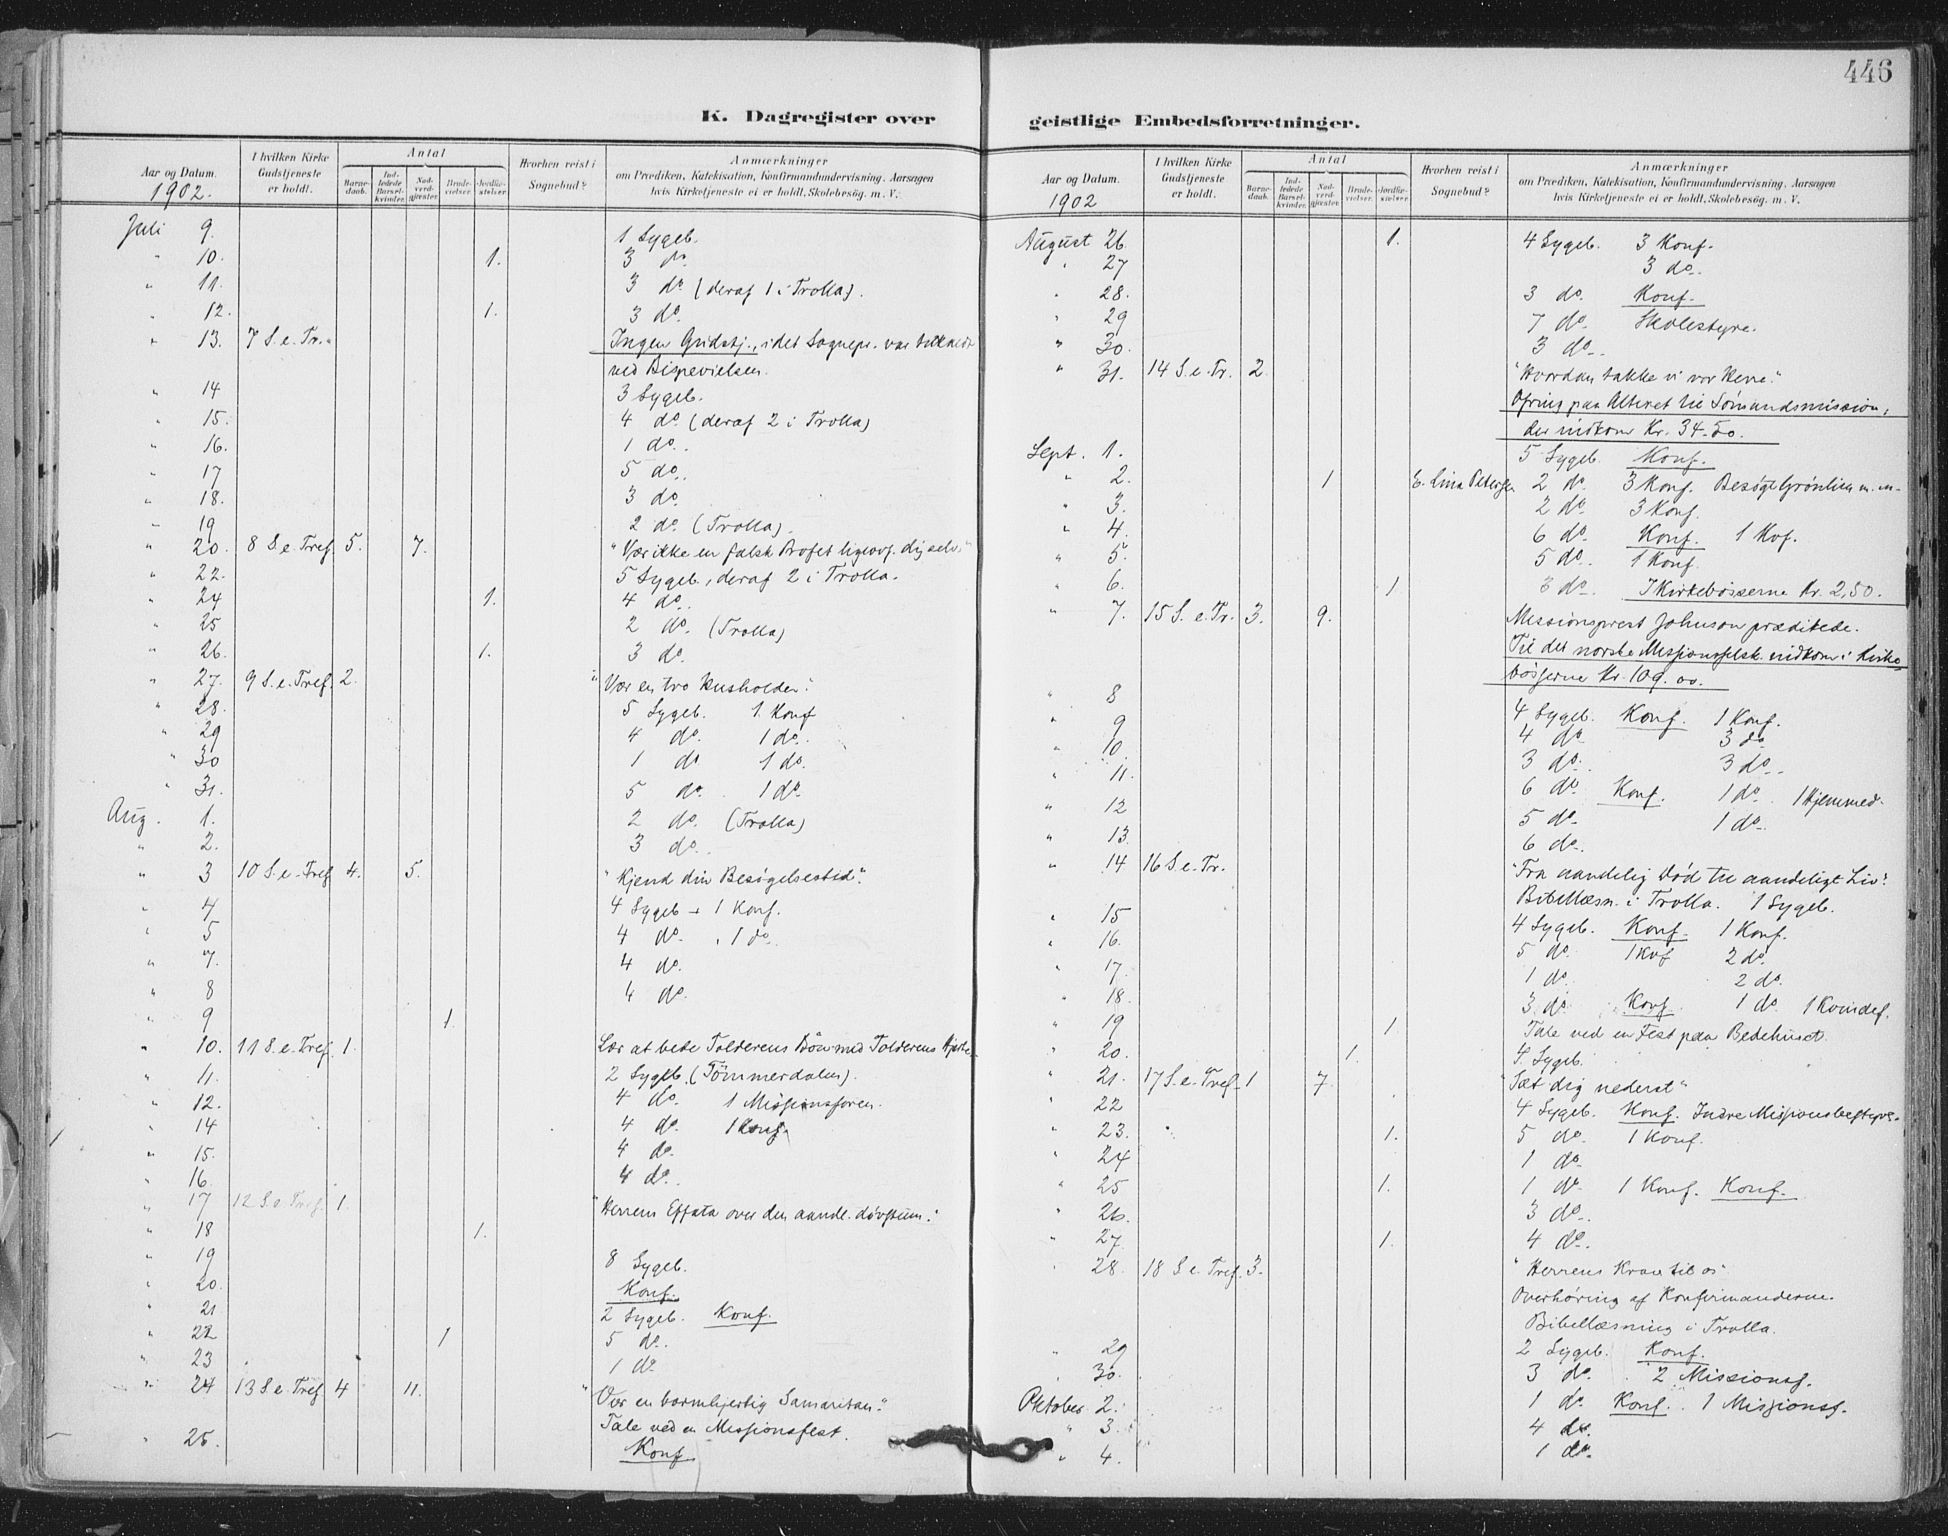 446
K. Dagregister over geistlige Embedsforretninger.
Aar og Datum.
1902.
I hvilken Kirke Gudstjeneste er holdt.
Antal
Barnedaab.
Indledede Barselkvinder.
Nadverdgjæster.
Brudevielser.
Jordfæstelser.
Hvorhen reist i Sognebud?
Anmærkninger
om Prædiken, Katekisation, Konfirmandundervisning, Aarsagen
hvis Kirketjeneste ei er holdt, Skolebesøg. m. V.
Juli 9. 1 Sygeb.
" 10. 1. 3 do
" 11. 3 do (deraf 1 i Trolla).
" 12. 1. 3 do.
" 13. 7 S. e. Tr. Ingen Gudstj., idet Sognepr. var
ved Bispevielsen.
" 14 3 Sygeb.
" 15. 4 do (deraf 2 i Trolla)
" 16. 1 do.
" 17 5 do.
" 18. 3 do
" 19 2 do. (Trolla).
" 20. 8 S. e. Tref. 5. 7. "Vær ikke en falsk Profet ligeovf. dig selv."
" 22. 5 Sygeb., deraf 2 i Trolla.
" 24 1. 4 do.
" 25 2 do. (Trolla)
" 26. 1. 3 do.
" 27. 9 S. e. Tref. 2. "Vær en tro Husholder."
" 28. 5 Sygeb. 1 Konf
" 29 4 do. 1 do.
" 30 1 do 1 do.
" 31. 5 do. 1 do.
Aug. 1. 2 do. (Trolla)
" 2. 3 do.
" 3 10 S. e. Tref 4. 5. "Kjend din Besøgelsestid".
" 4 4 Sygeb + 1 Konf.
" 5 4 do. 1 do.
" 7. 4 do.
" 8 4 do.
" 9 1.
" 10. 11 S. e. Tref. 1. Lær at bede Tolderens Bøn med Tolderens Hjerte.
" 11. 2 Sygeb. (Tømmerdalen).
" 12. 4 do. 1 Missionsforen.
" 14 4 do. 1 Konf.
" 15. 4 do.
" 16. 4 do.
" 17 12 S. e. Tref. 1. "Herrens Effata over den aandl. døvstum."
" 18 1.
" 19 8 Sygeb.
" 20. Konf.
" 21 2 Sygeb. Konf.
" 22 1 5 do.
" 23 1 do
" 24 13 S. e. Tref 4 11. "Vær en barmhjertig Samaritan."
Tale ved en Missionsfest.
" 25. Konf
Aar og Datum.
1902
I hvilken Kirke Gudstjeneste er holdt.
Antal
Barnedaab.
Indledede Barselkvinder.
Nadverdgjæster.
Brudevielser.
Jordfæstelser.
Hvorhen reist i Sognebud?
Anmærkninger
om Prædiken, Katekisation, Konfirmandundervisning, Aarsagen
hvis Kirketjeneste ei er holdt, Skolebesøg. m. V.
August 26. 1. 4 Sygeb. 3 Konf.
" 27 3 do.
" 28. 3 do. Konf.
" 29 7 do. Skolestyre.
" 30. 3 do.
" 31. 14 S. e. Tr. 2. "Hvordan takke vi vor Herre."
Ofring paa Alteret til Sømandsmission,
der indkom Kr. 34-50.
Sept. 1. 5 Sygeb. Konf.
" 2. 1 Lina Petersen 2 do. 3 Konf. Besøgt Grønlien m. m.
" 3. 2 do. 3 Konf.
" 4. 6 do. Konf. 1 Kof.
" 5. 5 do. 1 Konf.
" 6. 1 3 do. I Kirkebøsserne Kr. 2,50.
" 7. 15 S. e. Tr. 3. 9. Missionsprest Johnson prædikede.
Til det norske Missionsselsk. indkom i Kirke-
bøsserne Kr. 109.00.
" 8 4 Sygeb. Konf. 1 Konf.
" 9 4 do 3 do
" 10. 3 do. 3 do.
" 11. 6 do. Konf. 1 do. 1 Hjemmed.
" 12 5 do. 1 do.
" 13. 6 do.
" 14 16 S. e. Tr. "Fra aandelig Død til aandeligt Liv."
Bibellæsn. i Trolla. 1 Sygeb.
" 15 4 Sygeb. Konf. 1 Konf.
" 16. 5 do. 1 Kof 2 do.
" 17. 1 do. 2 do.
" 18 3 do. Konf. 1 do. 1 Kvindef.
" 19 1. Tale ved en Fest paa Bedehuset.
" 20. 1. 4 Sygeb.
" 21. 17 S. e. Tref. 1 7. "Sæt dig nederst"
" 22 4 Sygeb. Konf. Indre Missionsbestyr.
" 23. 1. 5 do. 1 Konf.
" 24 1 do.
" 25 1. 1 do. 1 Konf. Konf.
" 26. 3 do.
" 27. 1. 4 do.
" 28. 18 S. e. Tref. 3. "Herrens Krav til os"
Overhøring af Konfirmanderne.
Bibellæsning i Trolla.
" 29 2 Sygeb. Konf.
" 30. 3 do. 2 Missionsf.
Oktober 2. 1 do. Konf. 1 Missionsf.
" 3. 4 do.
" 4. 1 do.